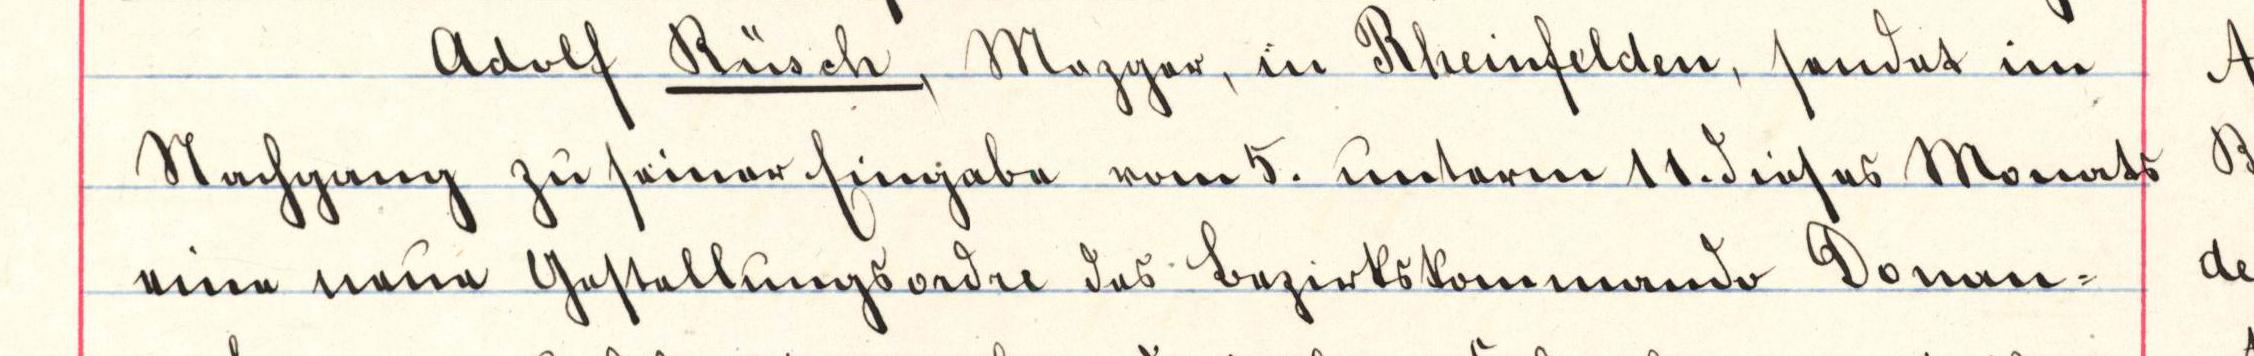 Adolf Rüsch, Mezger, in Rheinfelden, sendet im
Nachgang zu seiner Eingabe vom 5. unterm 11. dieses Monats
eine neue Gestellungsordre des Bezirkskommando Donau=